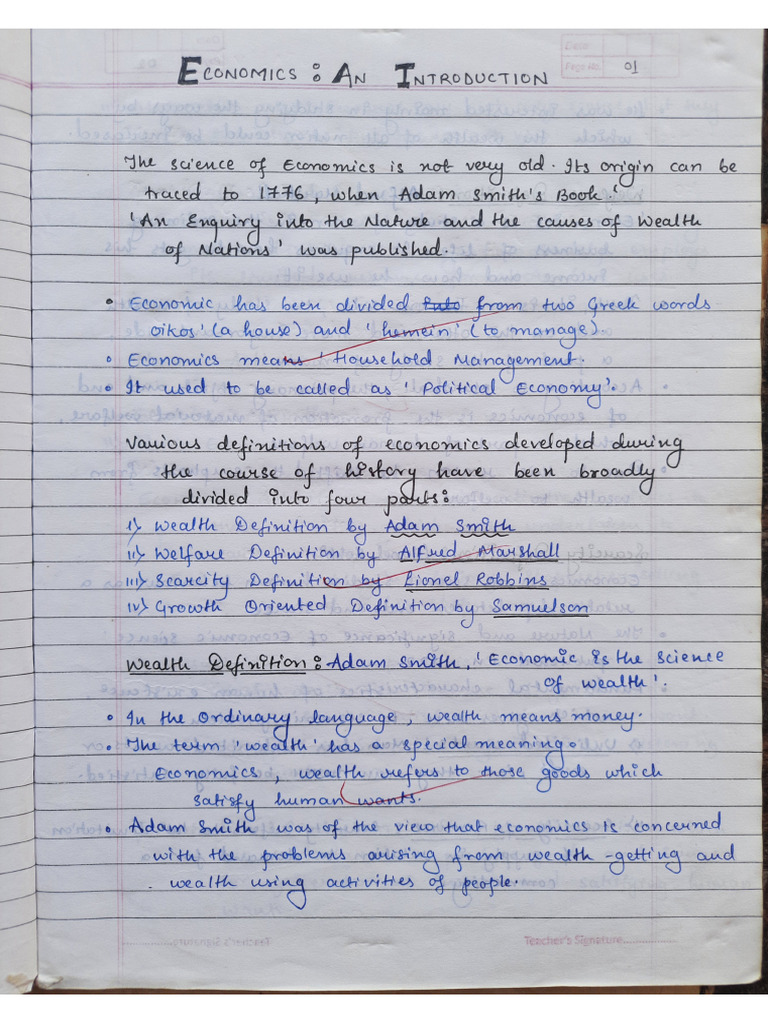 Date
Page No. 01
ECONOMICS : AN INTRODUCTION
The science of Economics is not very old. Its origin can be
traced to 1776, when Adam Smith's Book.'
'An Enquiry into the Nature and the causes of Wealth
of Nations' was published.
• Economic has been divided into from two Greek words
oikos' (a house) and 'hemein' (to manage).
• Economics means 'Household Management.
• It used to be called as 'Political Economy'.
Various definitions of economics developed during
the course of history have been broadly
divided into four parts:
i) Wealth Definition by Adam Smith
ii) Welfare Definition by Alfred Marshall
iii) Scarcity Definition by Lionel Robbins
iv) Growth Oriented Definition by Samuelson
Wealth Definition: Adam Smith, 'Economic is the science
of wealth'.
• In the Ordinary language, wealth means money.
• The term 'wealth' has a special meaning.
Economics, wealth refers to those goods which
satisfy human wants.
• Adam Smith was of the view that economics is concerned
with the problems arising from wealth-getting and
wealth using activities of people.
Teacher's Signature..................